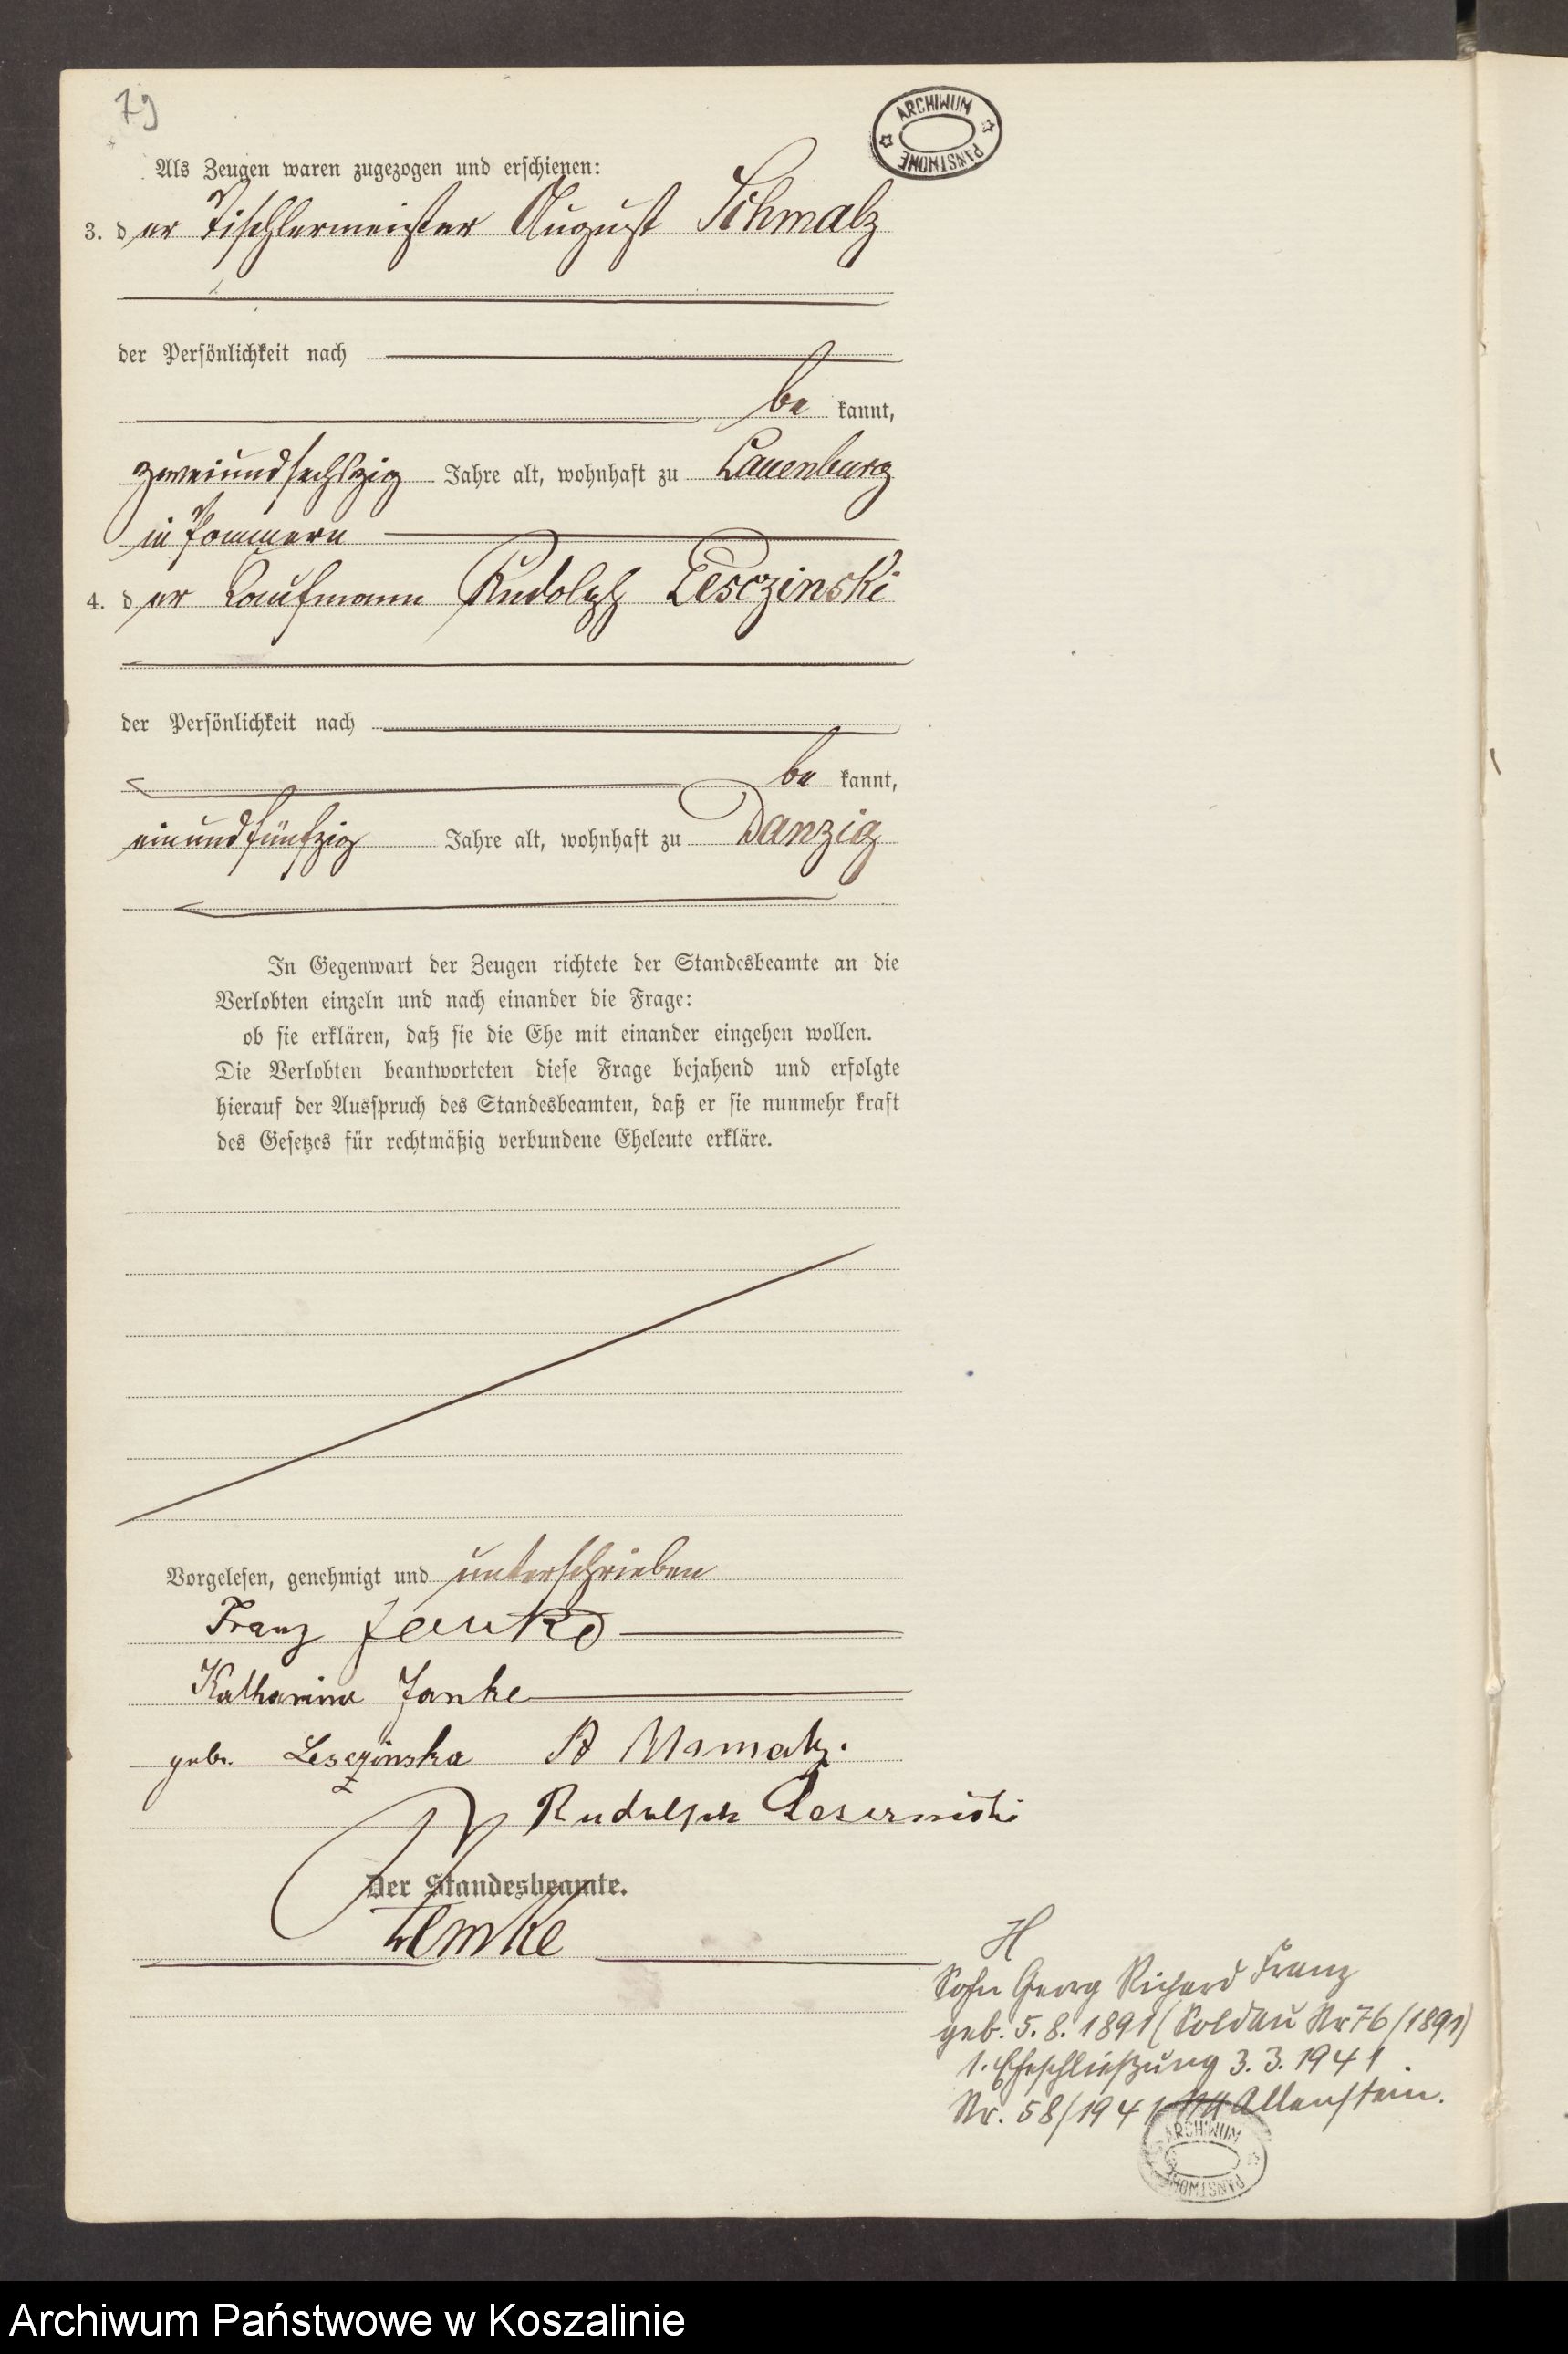 79
ARCHIWUM PAŃSTWOWE
Als Zeugen waren zugezogen und erschienen:
3. der Tischlermeister August Schmalz
der Persönlichkeit nach
be kannt,
zweiundsechszig Jahre alt, wohnhaft zu Lauenburg
in Pommern
4. der Kaufmann Rudolph Lesczinski
der Persönlichkeit nach
be kannt,
einundfünfzig Jahre alt, wohnhaft zu Danzig
In Gegenwart der Zeugen richtete der Standesbeamte an die
Verlobten einzeln und nach einander die Frage:
ob sie erklären, daß sie die Ehe mit einander eingehen wollen.
Die Verlobten beantworteten diese Frage bejahend und erfolgte
hierauf der Ausspruch des Standesbeamten, daß er sie nunmehr kraft
des Gesetzes für rechtmäßig verbundene Eheleute erkläre.
Vorgelesen, genehmigt und unterschrieben
Franz Janke
Katharina Janke
geb. Lesczinska A
Rudolph
Der Standesbeamte.
Lemke
H
Sohn Georg Richard Franz
geb. 5. 8. 1891 (Soldau Nr 76/1891)
1. Eheschließung 3. 3. 1941
Nr. 58/1941 Allenstein.
ARCHIWUM PAŃSTWOWE
Archiwum Państwowe w Koszalinie